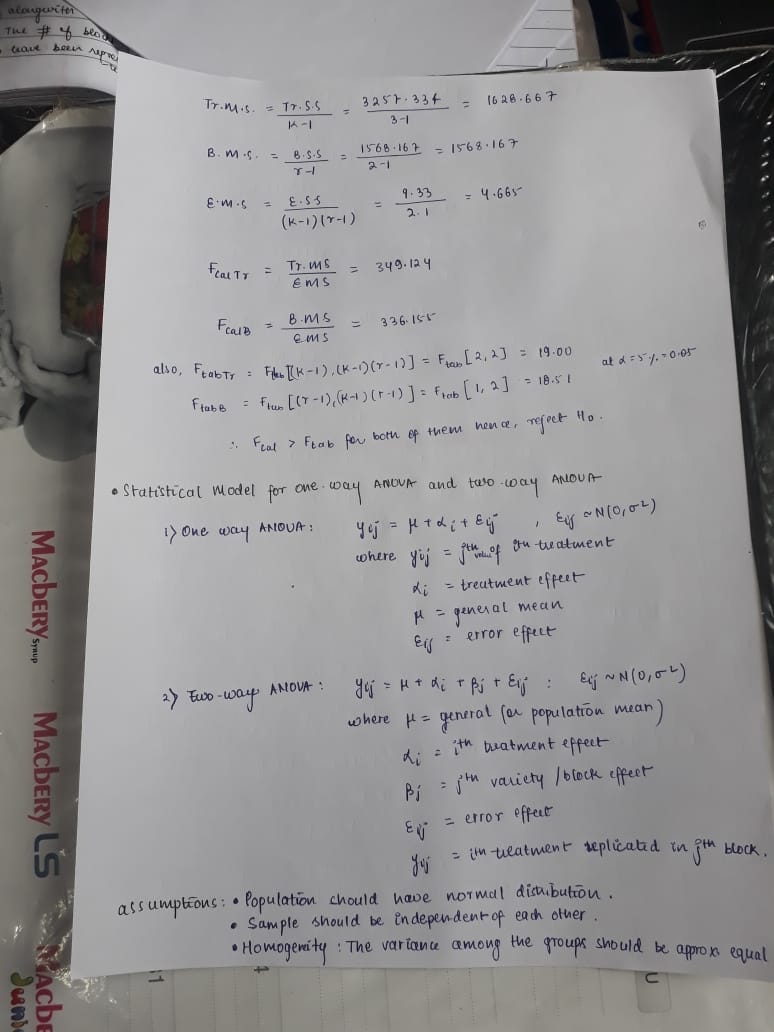 alongwith
The # of bloc
have been repre
Tr.M.S. = Tr.S.S / K-1 = 3257.334 / 3-1 = 1628.667
B.M.S. = B.S.S / r-1 = 1568.167 / 2-1 = 1568.167
E.M.S = E.SS / (K-1)(r-1) = 9.33 / 2.1 = 4.665
Fcal Tr = Tr.MS / EMS = 349.124
Fcal B = B.MS / EMS = 336.155
also, Ftab Tr = Ftab [(K-1), (K-1)(r-1)] = Ftab [2,2] = 19.00 at α = 5% = 0.05
Ftab B = Ftab [(r-1), (K-1)(r-1)] = Ftab [1,2] = 18.51
∴ Fcal > Ftab for both of them hence, reject H0.
• Statistical Model for one-way ANOVA and two-way ANOVA
1) One way ANOVA: yij = μ + αi + εij , εij ~ N(0,σ²)
where yij = jth value of ith treatment
αi = treatment effect
μ = general mean
εij = error effect
2) Two-way ANOVA: yij = μ + αi + βj + εij : εij ~ N(0,σ²)
where μ = general (or population mean)
αi = ith treatment effect
βj = jth variety / block effect
εij = error effect
yij = ith treatment replicated in jth block.
assumptions: • Population should have normal distribution.
• Sample should be independent of each other.
• Homogenity: The variance among the groups should be approx equal
MACBERY Syrup
MACBERY LS
MACBE
Juni